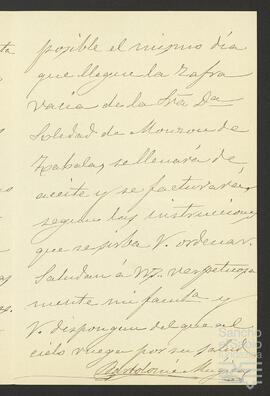 posible el mismo día
que llegue la zafra
vacia de la Sra Da
Soledad de Mouron de
Zabala, se llenará de
aceite y se facturará,
segun las instrucciones
que se sirba V. ordenar.
Saludan á V. respetuosa
mente mi familia y
V. dispongan del que al
cielo ruega por su salud
Bartolomé
Sancho
el Sabio